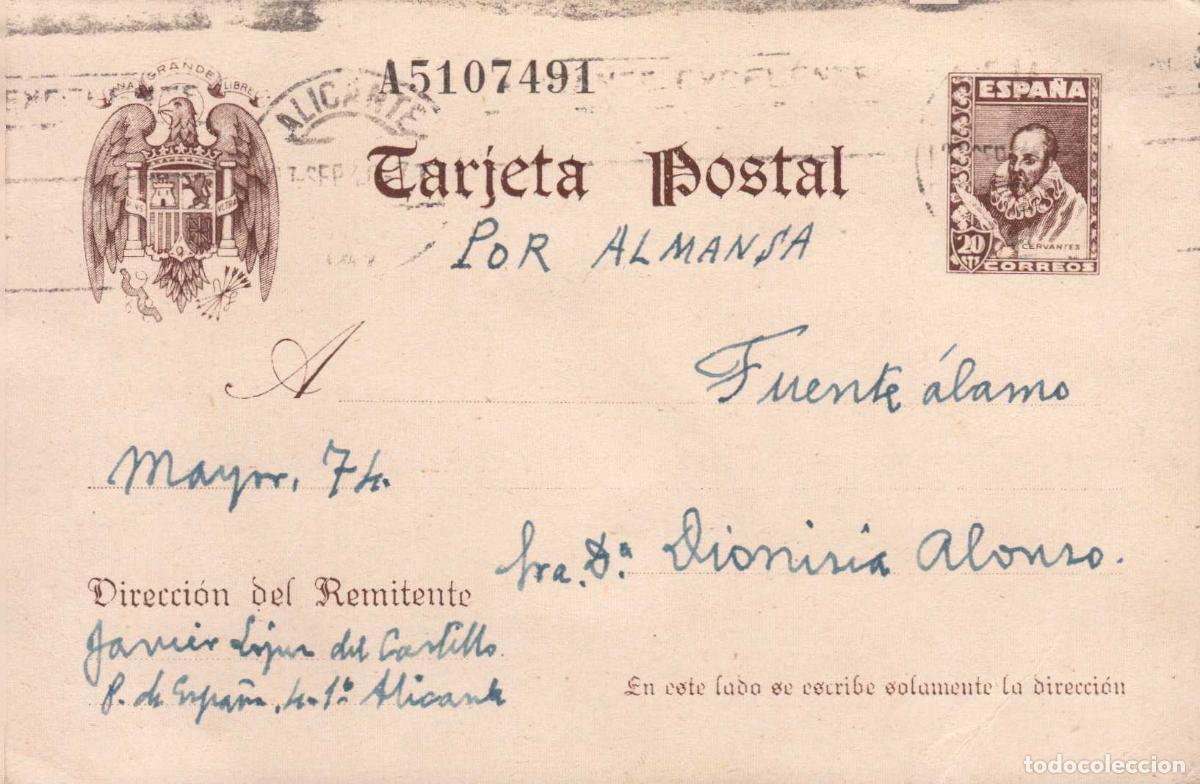 UNA GRANDE LIBRE
A5107491
ESPAÑA
ALICANTE
SEP
Tarjeta Postal
POR ALMANSA
20
CTS
CERVANTES
CORREOS
A
Fuente álamo
Mayor, 74.
Sra. Dª Dionisia Alonso.
Dirección del Remitente
Javier López del Castillo
P. de España, 4-1º Alicante
En este lado se escribe solamente la dirección
todocoleccion